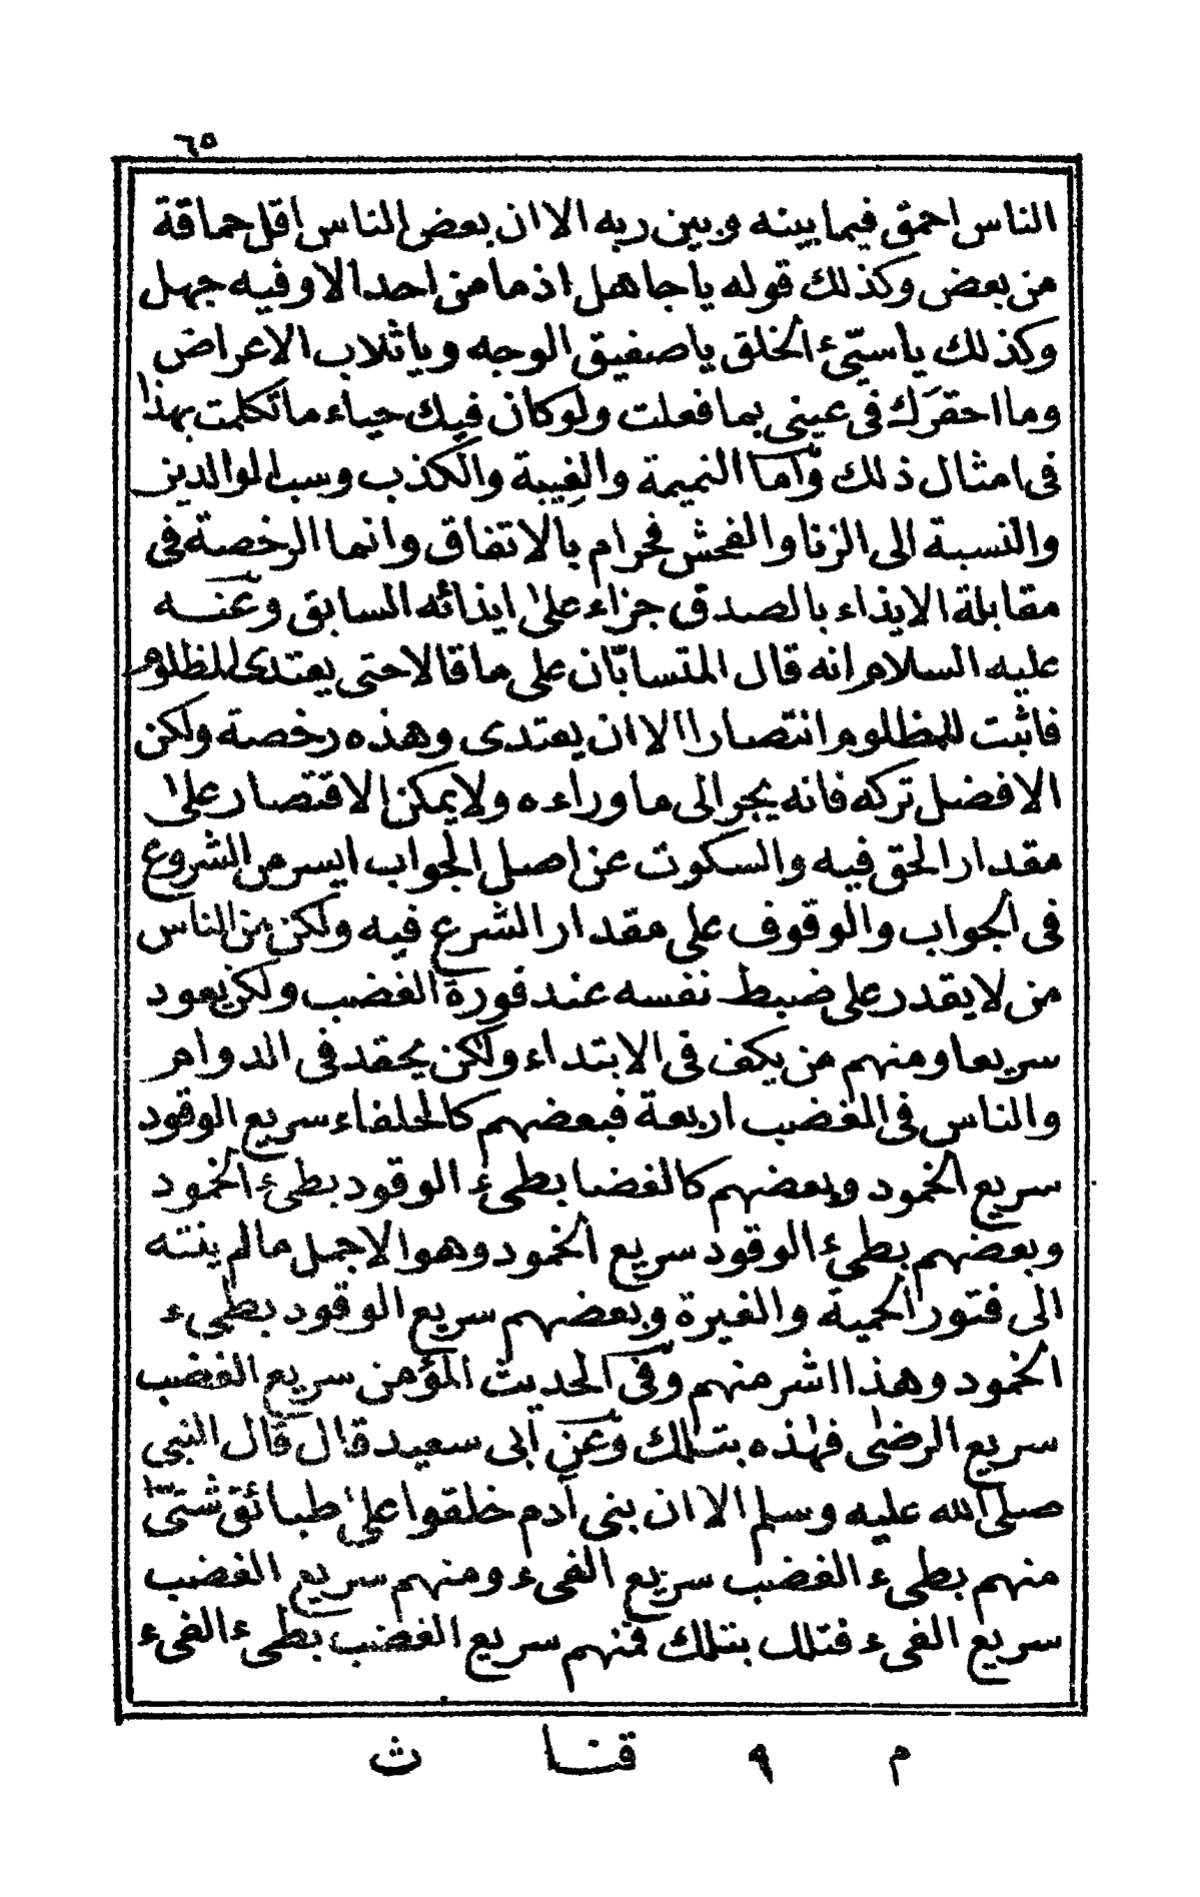 ٦٥
الناس احمق فيما بينه وبين ربه الا ان بعض الناس اقل حماقة
من بعض وكذلك قوله يا جاهل اذ ما من احد الا وفيه جهل
وكذلك يا سيّئ الخلق يا صفيق الوجه ويا ثلاب الاعراض
وما احقرك فى عينى بما فعلت ولو كان فيك حياء ما تكلمت بهذا
فى امثال ذلك وأما النميمة والغيبة والكذب وسب الوالدين
والنسبة الى الزنا والفحش فحرام بالاتفاق وانما الرخصة فى
مقابلة الايذاء بالصدق جزاء على ايذائه السابق وعنه
عليه السلام انه قال المتسابّان على ما قالا حتى يعتدى المظلوم
فاثبت للمظلوم انتصارا الا ان يعتدى وهذه رخصة ولكن
الافضل تركه فانه يجر الى ما وراءه ولا يمكن الاقتصار على
مقدار الحق فيه والسكوت عن اصل الجواب ايسر من الشروع
فى الجواب والوقوف على مقدار الشرع فيه ولكن من الناس
من لا يقدر على ضبط نفسه عند فورة الغضب ولكن يعود
سريعا ومنهم من يكف فى الابتداء ولكن يحقد فى الدوام
والناس فى الغضب اربعة فبعضهم كالحلفاء سريع الوقود
سريع الخمود وبعضهم كالغضا بطئ الوقود بطئ الخمود
وبعضهم بطئ الوقود سريع الخمود وهو الاجمل ما لم ينته
الى فتور الحمية والغيرة وبعضهم سريع الوقود بطىء
الخمود وهذا اشر منهم وفى الحديث المؤمن سريع الغضب
سريع الرضى فهذه بتلك وعن أبى سعيد قال قال النبى
صلى الله عليه وسلم الا ان بنى آدم خلقوا على طبائق شتى
منهم بطىء الغضب سريع الفىء ومنهم سريع الغضب
سريع الفىء فتلك بتلك فمنهم سريع الغضب بطىء الفىء
م ٩ قنا ث